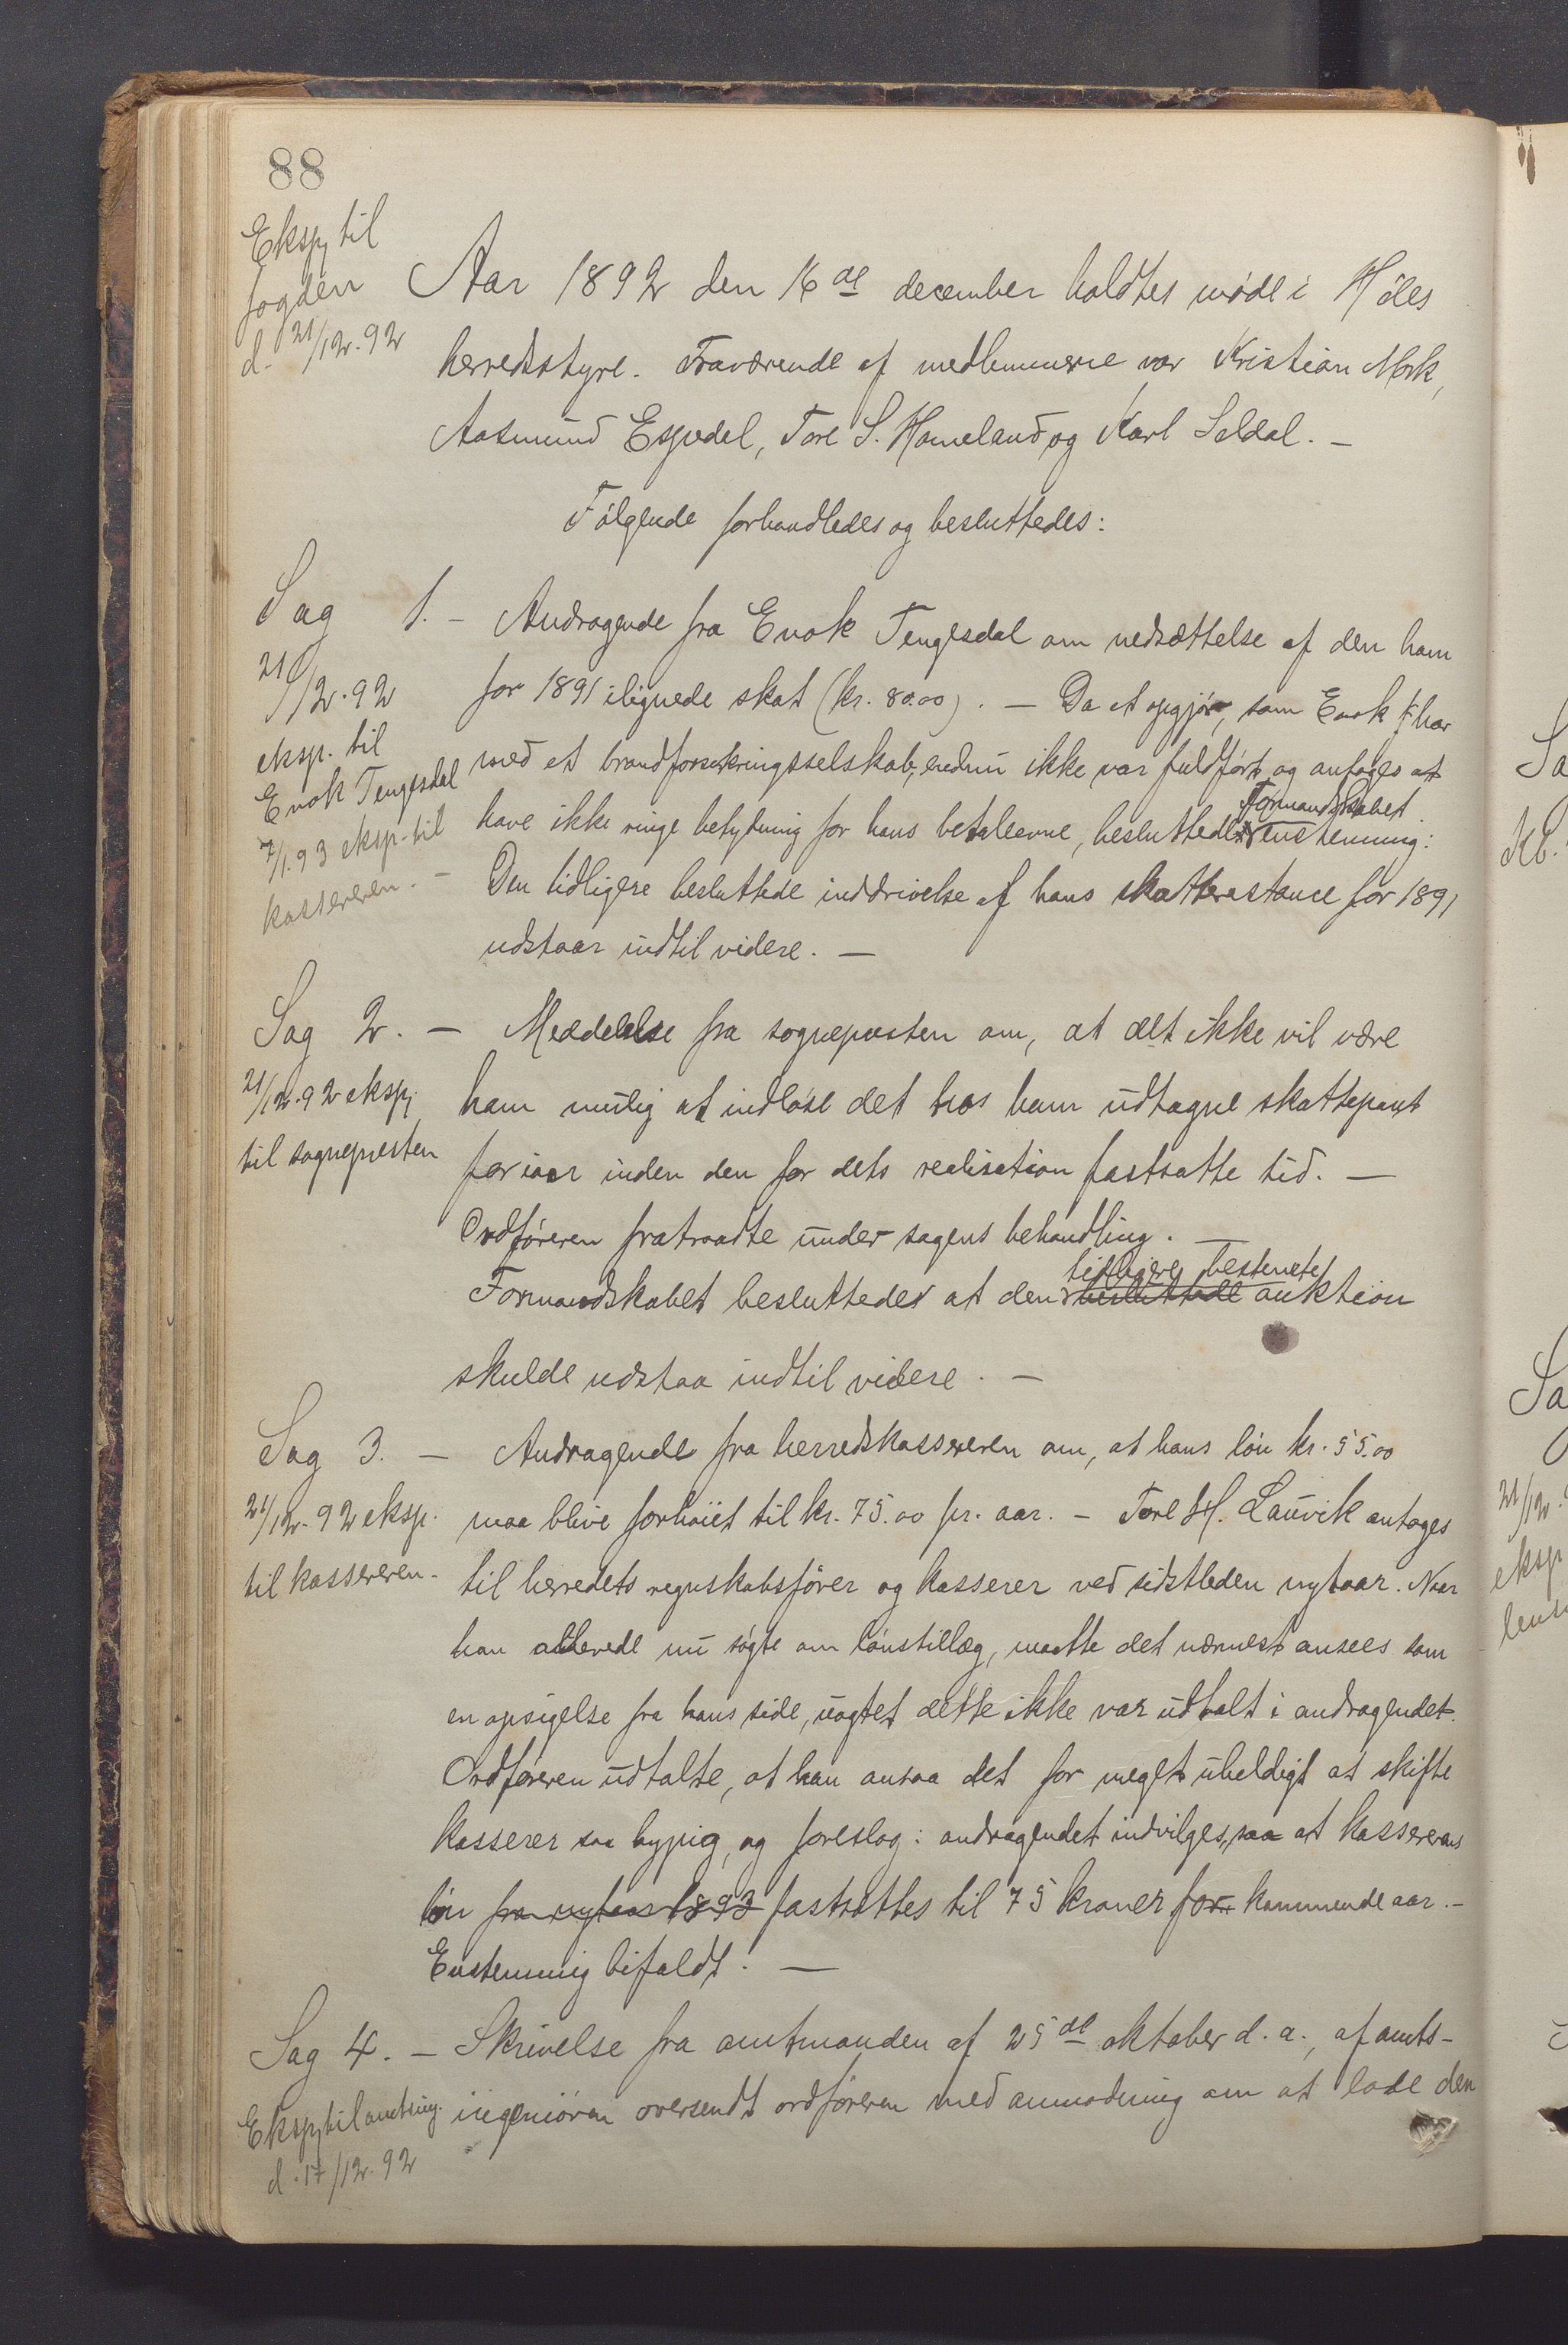 88
Eksp til
fogden
d. 21/12.92
Aar 1892 den 16de december holdtes møde i Høles
herredsstyre. Fraværende af medlemmerne var Kristian Mørk,
Aasmund Espedal, Tore S. Hameland og Karl Seldal. –
Følgende forhandledes og besluttedes:
Sag 1. – Andragende fra Enok Tengesdal om nedsættelse af den ham
for 1891 ilignede skat (kr. 80.00). – Da et opgjør, som Enok T. har
med et brandforsikringsselskab, endnu ikke var fuldført og antages at
have ikke ringe betydning for hans betaleevne, besluttede formandskabet enstemmig:
Den tidligere besluttede inddrivelse af hans skatterestance for 1891
udstaar indtil videre. –
21/12.92
eksp. til
Enok Tengesdal
7/1.93 eksp. til
kassereren. –
Sag 2. – Meddelelse fra sognepresten om, at det ikke vil være
ham mulig at indløse det hos ham udtagne skattepant
for iaar inden den for dets realisation fastsatte tid. –
Ordføreren fratraadte under sagens behandling. –
Formandskabet besluttedes at den tidligere bestemte besluttede auktion
skulde udstaa indtil videre. –
21/12.92 eksp.
til sognepresten
Sag 3. – Andragende fra herredskassereren om, at hans løn kr. 55.00
maa blive forhøiet til kr. 75.00 pr. aar. – Tore H. Lauvik antoges
til herredets regnskabsfører og kasserer ved sidstleden nytaar. Naar
han allerede nu søgte om lønstillæg, maatte det nærmest ansees som
en opsigelse fra hans side, uagtet dette ikke var udtalt i andragendet.
Ordføreren udtalte, at han ansaa det for meget uheldigt at skifte
kasserer saa hyppig, og foreslog: andragendet indvilges, saa at kassererens
løn fra nytaar 1893 fastsættes til 75 kroner for kommende aar. –
Enstemmig bifaldt. –
21/12.92 eksp.
til kassereren.
Sag 4. – Skrivelse fra amtmanden af 25de oktober d. a., af amts-
ingeniøren oversendt ordføreren med anmodning om at lade den
Eksp til amtsing.
d. 17/12.92
Sa
Kl.
Sa
21/12.
eksp
lens